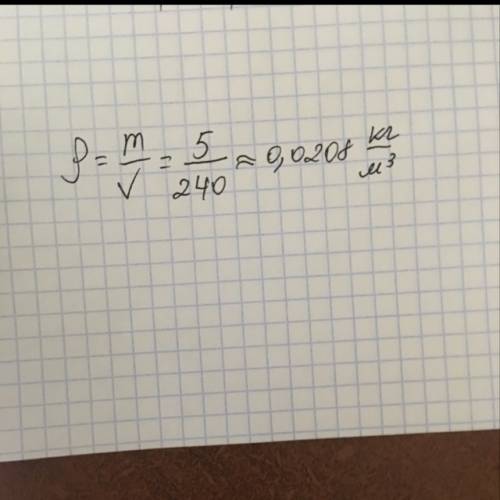 ρ = m/V = 5/240 ≈ 0,0208 кг/м³